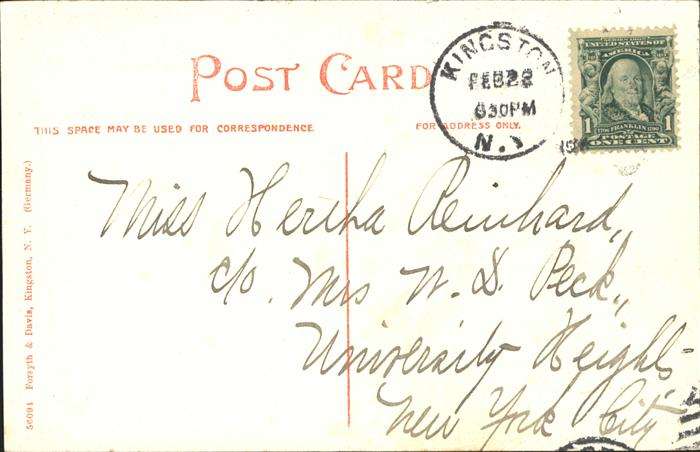 POST CARD
THIS SPACE MAY BE USED FOR CORRESPONDENCE
FOR ADDRESS ONLY.
KINGSTON
FEB 28
630PM
N.Y
SERIES 1902
UNITED STATES OF
AMERICA
1 1706 FRANKLIN 1790 1
POSTAGE
ONE CENT
Miss Hertha Reinhard,
c/o. Mrs W. D. Peck,
University Heights
New York City
56094 Forsyth & Davis, Kingston, N. Y. (Germany.)